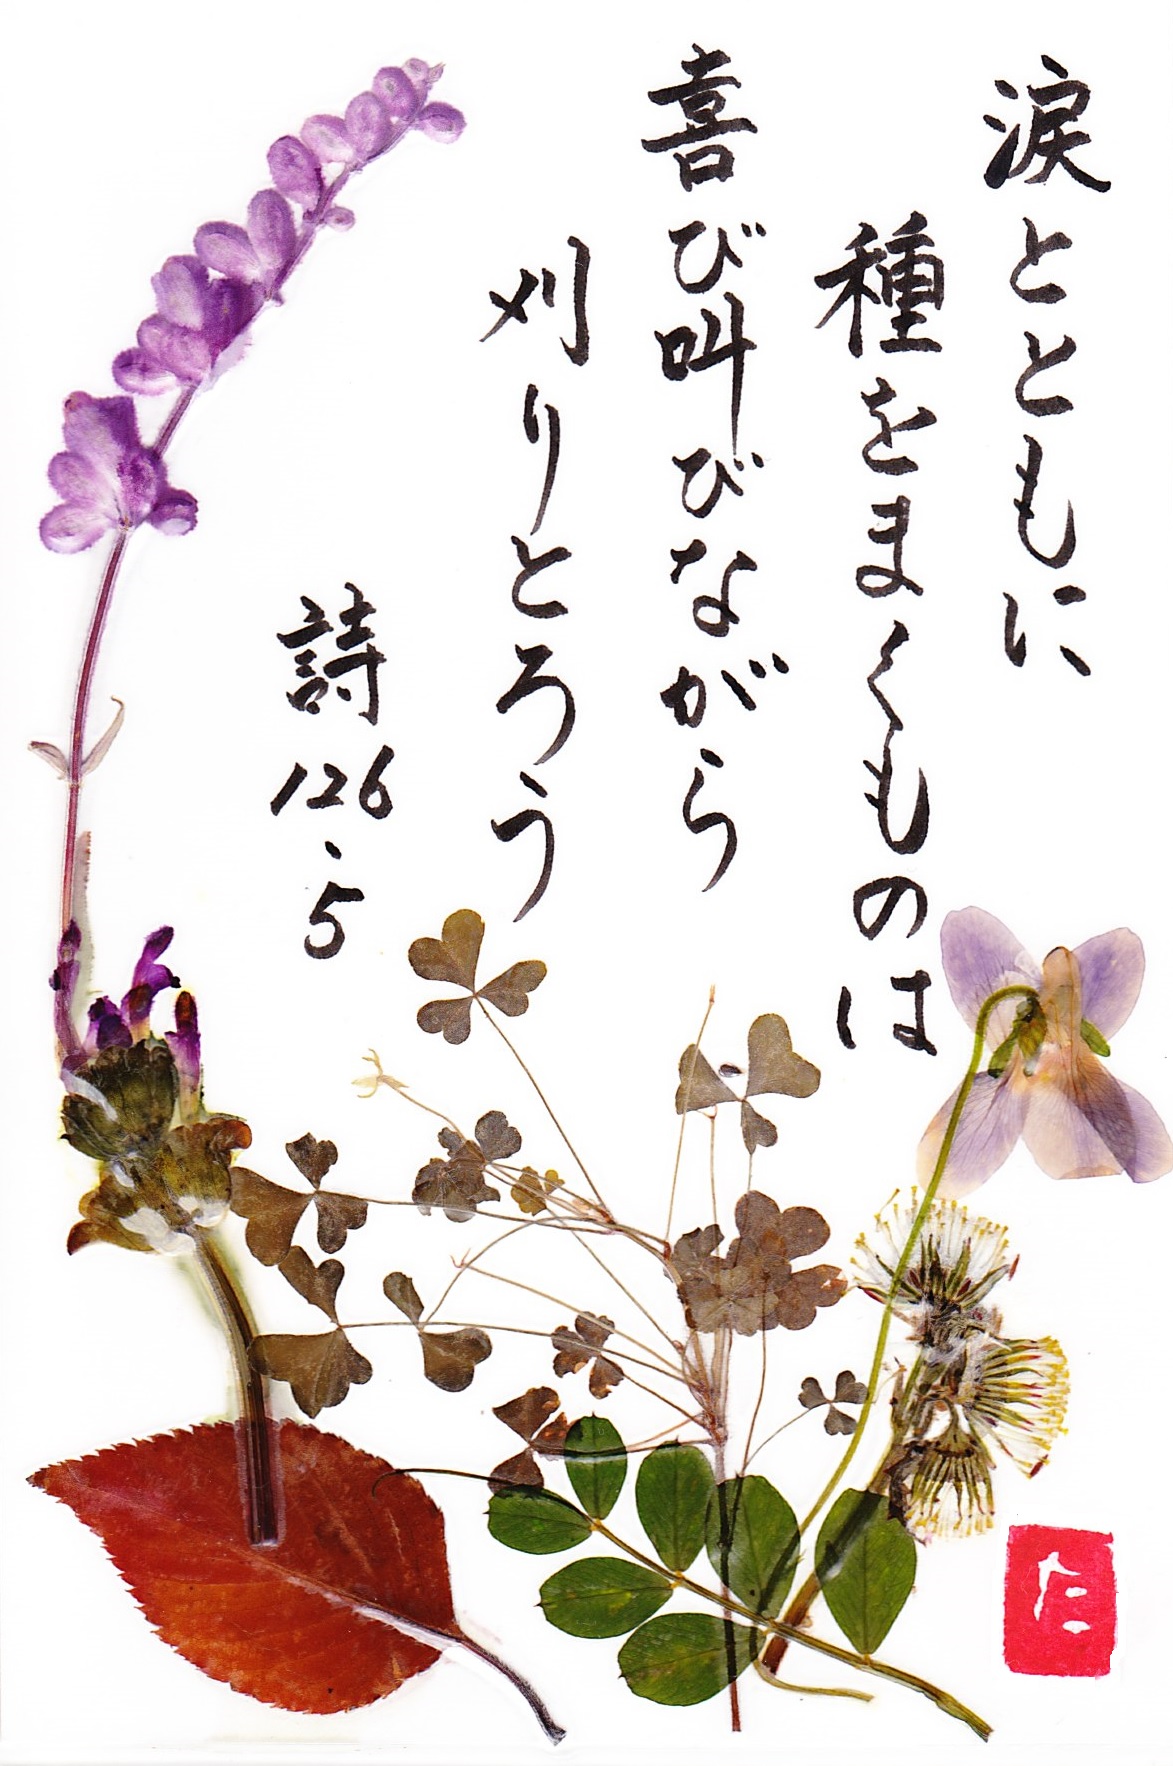 涙とともに
種をまくものは
喜び叫びながら
刈りとろう
詩126・5
た